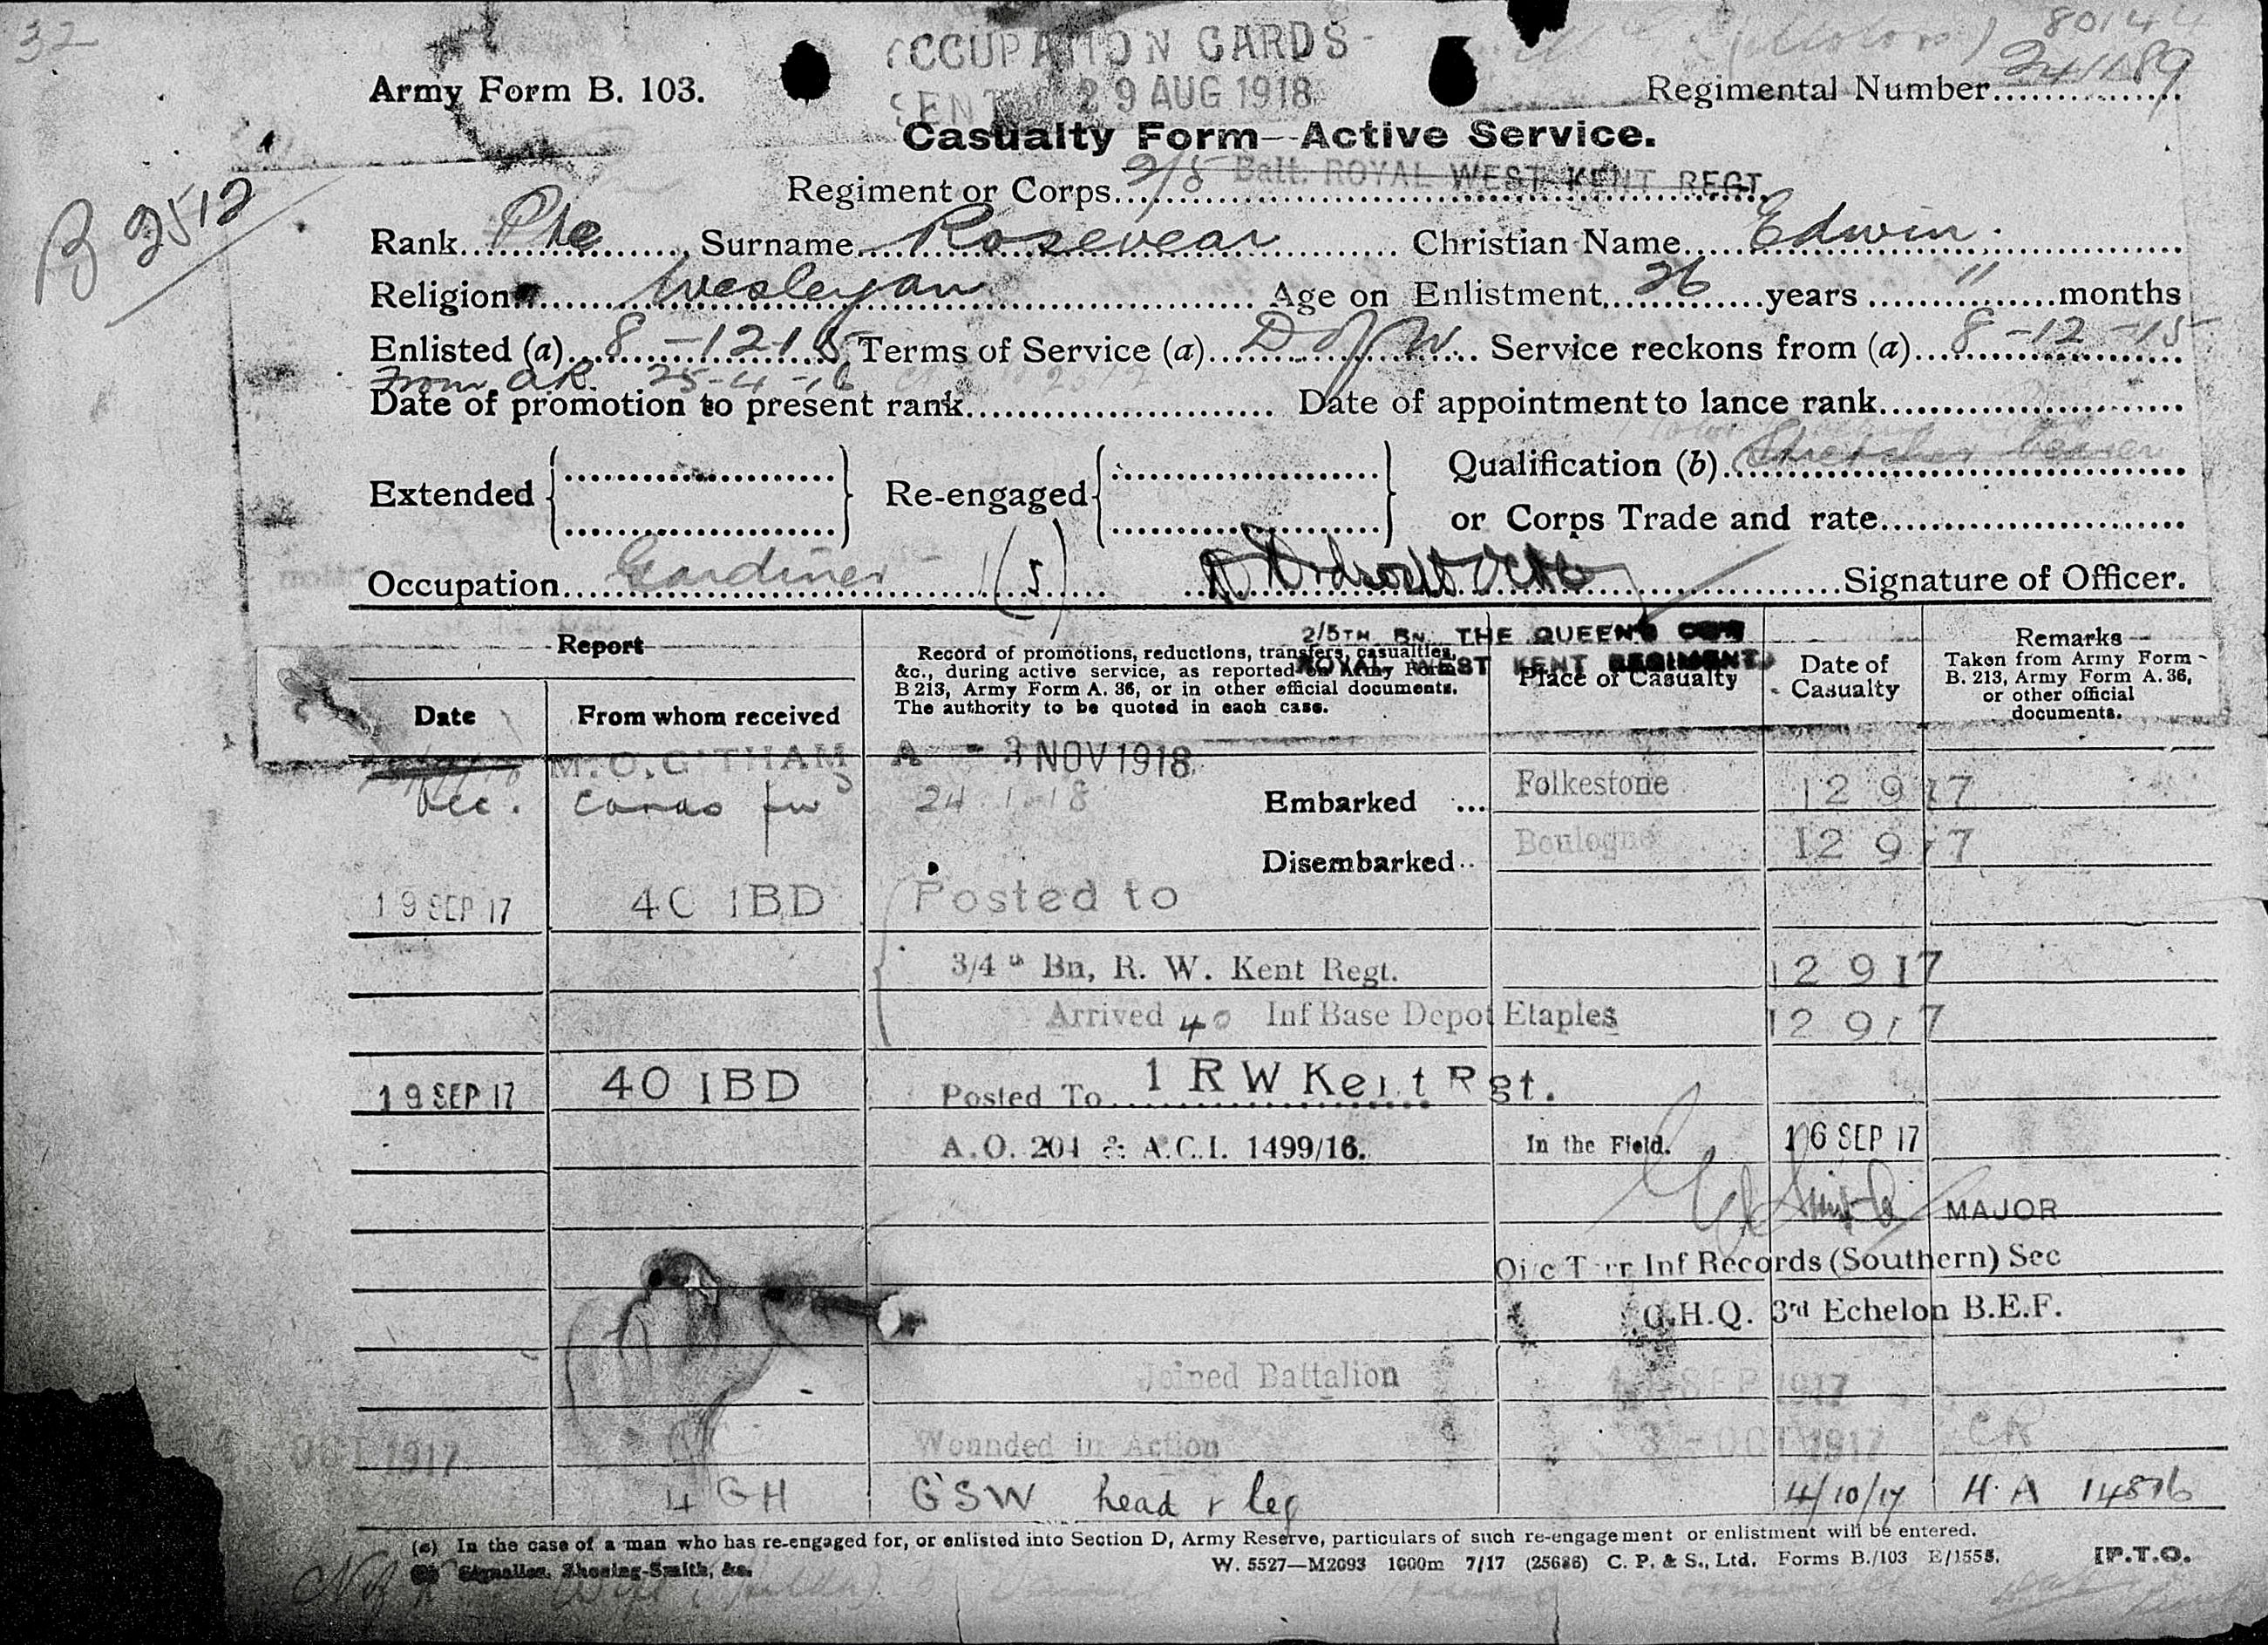 32
OCCUPATION CARDS
80144
SENT 29 AUG 1918
Army Form B. 103.
Regimental Number 241189
Casualty Form—Active Service.
Regiment or Corps 2/5 Batt. ROYAL WEST KENT REGT.
B 2512
Rank Pte Surname Rosevear Christian Name Edwin
Religion Wesleyan Age on Enlistment 26 years 11 months
Enlisted (a) 8-12-15 Terms of Service (a) D of W Service reckons from (a) 8-12-15
From A.R. 25-4-16
Date of promotion to present rank Date of appointment to lance rank
Extended Re-engaged Qualification (b) Stretcher Bearer
or Corps Trade and rate
Occupation Gardiner (5) Signature of Officer.
2/5TH BN. THE QUEEN'S OWN
ROYAL WEST KENT REGIMENT.
Report
Date
From whom received
Record of promotions, reductions, transfers, casualties,
&c., during active service, as reported on Army Form
B 213, Army Form A. 36, or in other official documents.
The authority to be quoted in each case.
Place of Casualty
Date of
Casualty
Remarks
Taken from Army Form
B. 213, Army Form A. 36,
or other official
documents.
M.O.G'THAM A - 3 NOV 1918
Occ. Cards fwd 24.1.18 Embarked ... Folkestone 12 9 17
Disembarked.. Boulogne 12 9 17
19 SEP 17 40 IBD Posted to
3/4th Bn, R. W. Kent Regt. 12 9 17
Arrived 40 Inf Base Depot Etaples 12 9 17
19 SEP 17 40 IBD Posted To 1 R W Kent Rgt.
A.O. 204 & A.C.I. 1499/16. In the Field. 16 SEP 17
MAJOR
Oi/c Terr Inf Records (Southern) Sec
G.H.Q. 3rd Echelon B.E.F.
Joined Battalion SEP 1917
OCT 1917 Wounded in Action 3 - OCT 1917 CR
4 GH GSW head & leg 4/10/17 H.A 14876
(a) In the case of a man who has re-engaged for, or enlisted into Section D, Army Reserve, particulars of such re-engagement or enlistment will be entered.
(b) Signaller, Shoeing-Smith, &c. W. 5527—M2093 1000m 7/17 (25686) C. P. & S., Ltd. Forms B./103 E/1555. [P.T.O.